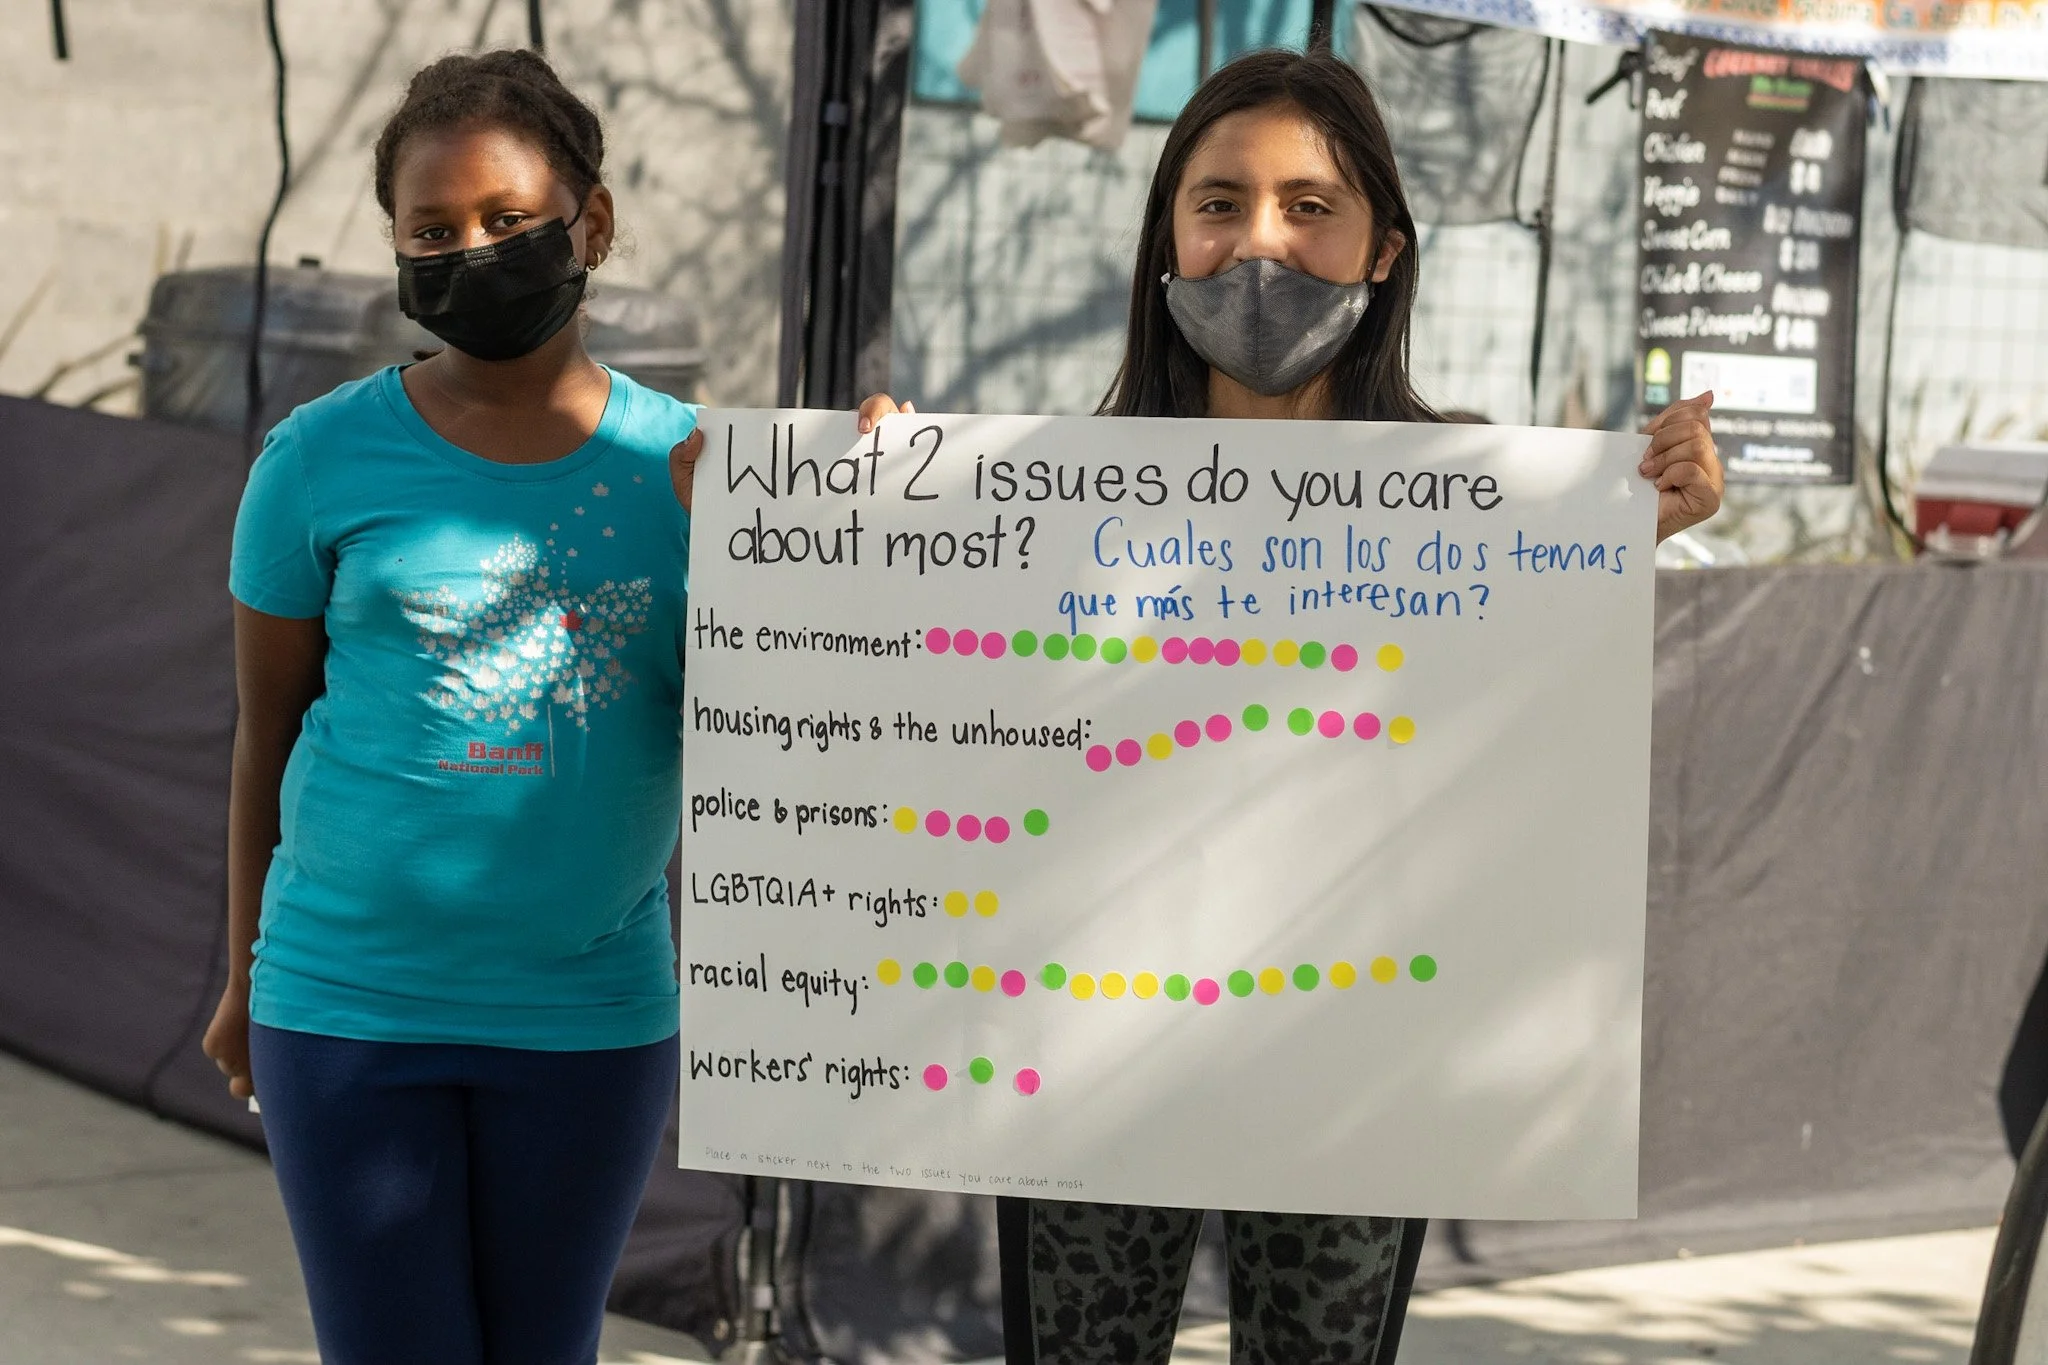 What 2 issues do you care
about most? Cuales son los dos temas
que más te interesan?
the environment:
housing rights & the unhoused:
police & prisons:
LGBTQIA+ rights:
racial equity:
Workers' rights:
Place a sticker next to the two issues you care about most
Banff
National Park
Beef
Pork
Chicken
Veggie
Sweet Corn
Chile & Cheese
Sweet Pineapple